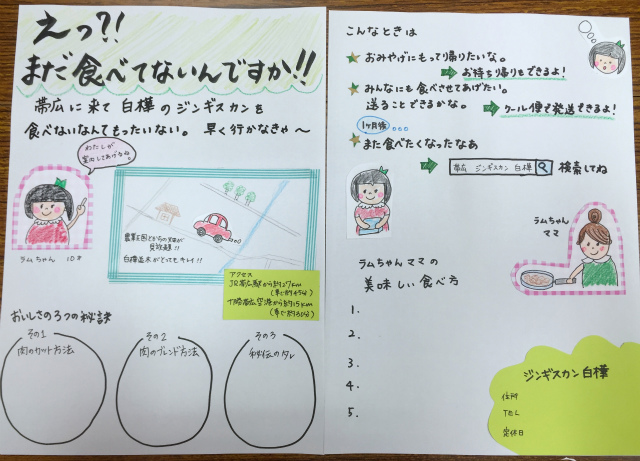 えっ?!
まだ食べてないんですか!!
帯広に来て白樺のジンギスカンを
食べないなんてもったいない。早く行かなきゃ〜
わたしが
案内してあげるね。
ラムちゃん 10才
農業王国とかちの畑が
見放題!!
白樺並木がとってもキレイ!!
アクセス
JR帯広駅から約27km
(車で約45分)
十勝帯広空港から約15km
(車で約30分)
おいしさの3つの秘訣
その1
肉のカット方法
その2
肉のブレンド方法
その3
秘伝のタレ
こんなときは
おみやげにもって帰りたいな。
お持ち帰りもできるよ!
みんなにも食べさせてあげたい。
送ることできるかな。
クール便で発送できるよ!
1ヶ月後
また食べたくなったなあ
帯広 ジンギスカン 白樺
検索してね
ラムちゃん
ママ
ラムちゃんママの
美味しい食べ方
1.
2.
3.
4.
5.
ジンギスカン白樺
住所
TEL
定休日